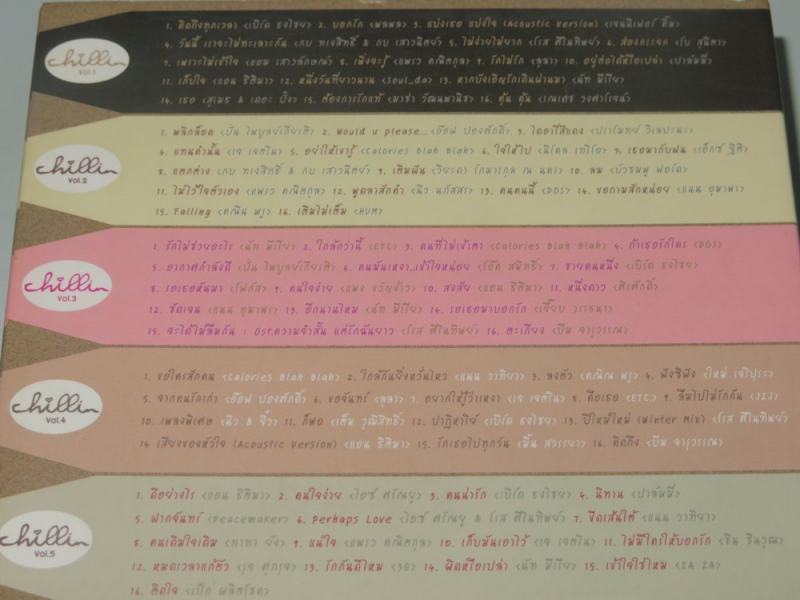 chillin
Vol.1
1. คิดถึงทุกเวลา <เบิร์ด ธงไชย> 2. บอกรัก <พลพล> 3. แบ่งเธอ แบ่งใจ (Acoustic Version) <เจนนิเฟอร์ คิ้ม>
4. วันนี้ เราจะไม่ทะเลาะกัน <กบ ทรงสิทธิ์ & กบ เสาวนิตย์> 5. ไม่ง่ายไม่ยาก <โรส ศิรินทิพย์> 6. ส่องกระจก <โบ สุนิตา>
7. เพราะไม่เข้าใจ <แอม เสาวลักษณ์> 8. เพิ่งจะรู้ <แพรว คณิตกุล> 9. รักไม่รัก <จุลา> 10. อยู่ต่อได้หรือเปล่า <ปาล์มมี่>
11. เก็บใจ <แอน ธิติมา> 12. หนึ่งวันที่ยาวนาน <Soul_da> 13. หากบังเอิญรักเดินผ่านมา <นัท มีเรีย>
14. เธอ <สุเมธ & เดอะ ปั๋ง> 15. ต้องการรักแท้ <มาช่า วัฒนพานิช> 16. คุ้น คุ้น <เจมส์
chillin
Vol.2
1. พลิกล็อค <ปั่น ไพบูลย์เกียรติ> 2. Would u please... <อ๊อฟ ปองศักดิ์> 3. ไดอารี่สีแดง <ปราโมทย์ วิเลปะนะ>
4. แทนคำนั้น <เจ เจตริน> 5. อย่าให้เขารู้ <Calories Blah Blah> 6. ใจให้ไป <นิโคล เทริโอ> 7. เธอมากับฝน <เอ็กซ์ ฐิติ>
8. แตกต่าง <กบ ทรงสิทธิ์ & กบ เสาวนิตย์> 9. เติมฝัน <วิยะดา โกมารกุล ณ นคร> 10. ลม <บัวชมพู ฟอร์ด>
11. ไม่ไว้ใจตัวเอง <แพรว คณิตกุล> 12. พูดลาสักคำ <นิว นภัสสร> 13. คนคนนี้ <DOS> 14. ขอถามสักหน่อย <แนน อุมาพร>
15. Falling <คณิณ พรู> 16. เติมไม่เต็ม <HUM>
chillin
Vol.3
1. รักไม่ช่วยอะไร <นัท มีเรีย> 2. ใกล้กว่านี้ <ETC> 3. คนที่ไม่เข้าตา <Calories Blah Blah> 4. ถ้าเธอรักใคร <DOS>
5. อากาศกำลังดี <ปั่น ไพบูลย์เกียรติ> 6. คนมันเหงา..เข้าใจหน่อย <อ๊๊ด สมิทธิ์> 7. ชายคนหนึ่ง <เบิร์ด ธงไชย>
8. รอเธอหันมา <โฟกัส> 9. คนใจง่าย <แพง ขวัญข้าว> 10. สงสัย <แอน ธิติมา> 11. หนึ่งดาว <
12. ชัดเจน <แนน อุมาพร> 13. อีกนานไหม <นัท มีเรีย> 14. รอเธอมาบอกรัก <เจี๊ยบ วรรธนา>
15. จะได้ไม่ลืมกัน : Ost.ความจำสั้น แต่รักฉันยาว <โรส ศิรินทิพย์> 16. ตะเกียง <บีม จารุวรรณ>
chillin
Vol.4
1. ขอใครสักคน <Calories Blah Blah> 2. ใกล้กันยิ่งหวั่นไหว <แนน วาทิยา> 3. ลงตัว <คณิณ พรู> 4. ฟังซิฟัง <ใหม่ เจริปุระ>
5. จากคนรักเก่า <อ๊อฟ ปองศักดิ์> 6. ขอจันทร์ <จุลา> 7. อยากให้รู้ว่าเหงา <เจ เจตริน> 8. คือเธอ <ETC> 9. ลืมไปไม่รักกัน <ZZZ>
10. เพลงพิเศษ <นิว & จิ๋ว> 11. ก็พอ <เต็ม วุฒิสิทธิ์> 12. ปาฏิหาริย์ <เบิร์ด ธงไชย> 13. ปีใหม่ใหม่ (Winter Mix) <โรส ศิรินทิพย์>
14. เสียงของหัวใจ (Acoustic Version) <แอน ธิติมา> 15. รักเธอไปทุกวัน <มิ้น สวรรยา> 16. คิดถึง <บีม จารุวรรณ>
chillin
Vol.5
1. ดีอย่างไร <แอน ธิติมา> 2. คนใจง่าย <ไอซ์ ศรัณยู> 3. คนน่ารัก <เบิร์ด ธงไชย> 4. นิทาน <ปาล์มมี่>
5. ฝากจันทร์ <Peacemaker> 6. Perhaps Love <ไอซ์ ศรัณยู & โรส ศิรินทิพย์> 7. ขีดเส้นใต้ <แนน วาทิยา>
8. คนเดิมใจเดิม <ทาทา ยัง> 9. แน่ใจ <แพรว คณิตกุล> 10. เก็บมันเอาไว้ <เจ เจตริน> 11. ไม่มีใครให้บอกรัก <ชิน ชินวุฒ>
12. หมดเวลาแก้ตัว <รุจ ศุภรุจ> 13. รักกันดีไหม <3G> 14. ผิดหรือเปล่า <นัท มีเรีย> 15. เข้าใจใช่ไหม <ZA ZA>
16. ติดใจ <เป๊ก ผลิตโชค>